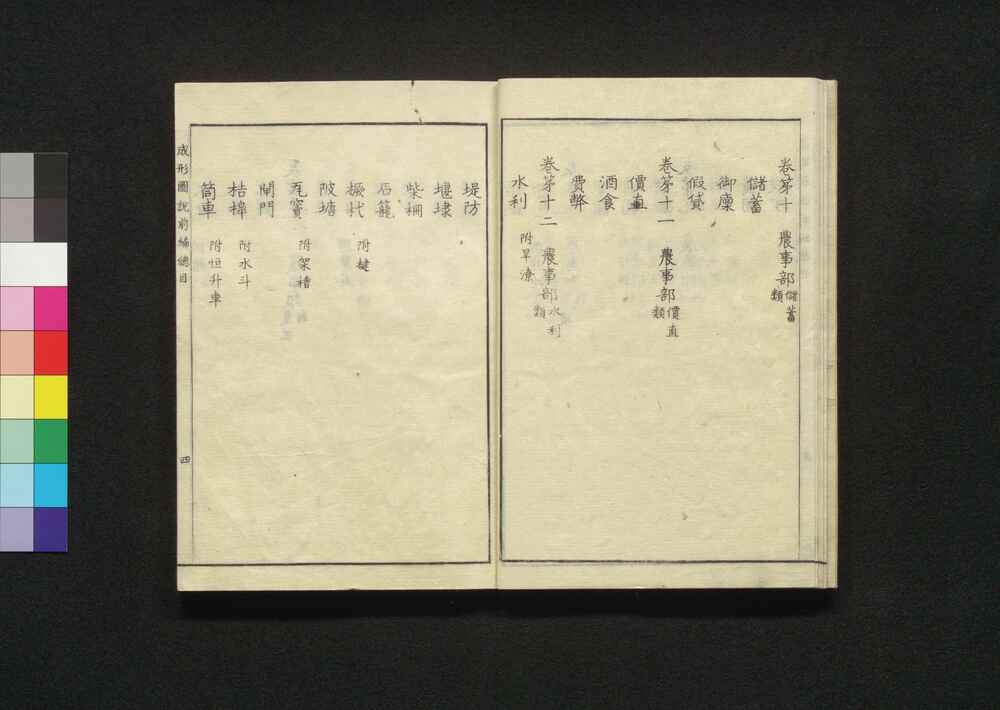 卷第十 農事部 儲蓄類
儲蓄
御廩
假貸
卷第十一 農事部 價直類
價直
酒食
費弊
卷第十二 農事部 水利類
水利 附旱潦
堤防
堰埭
柴柵
石籠
橛杙 附楗
陂塘
瓦竇 附架槽
閘門
桔槹 附水斗
筒車 附恒升車
成形圖說前編總目 四